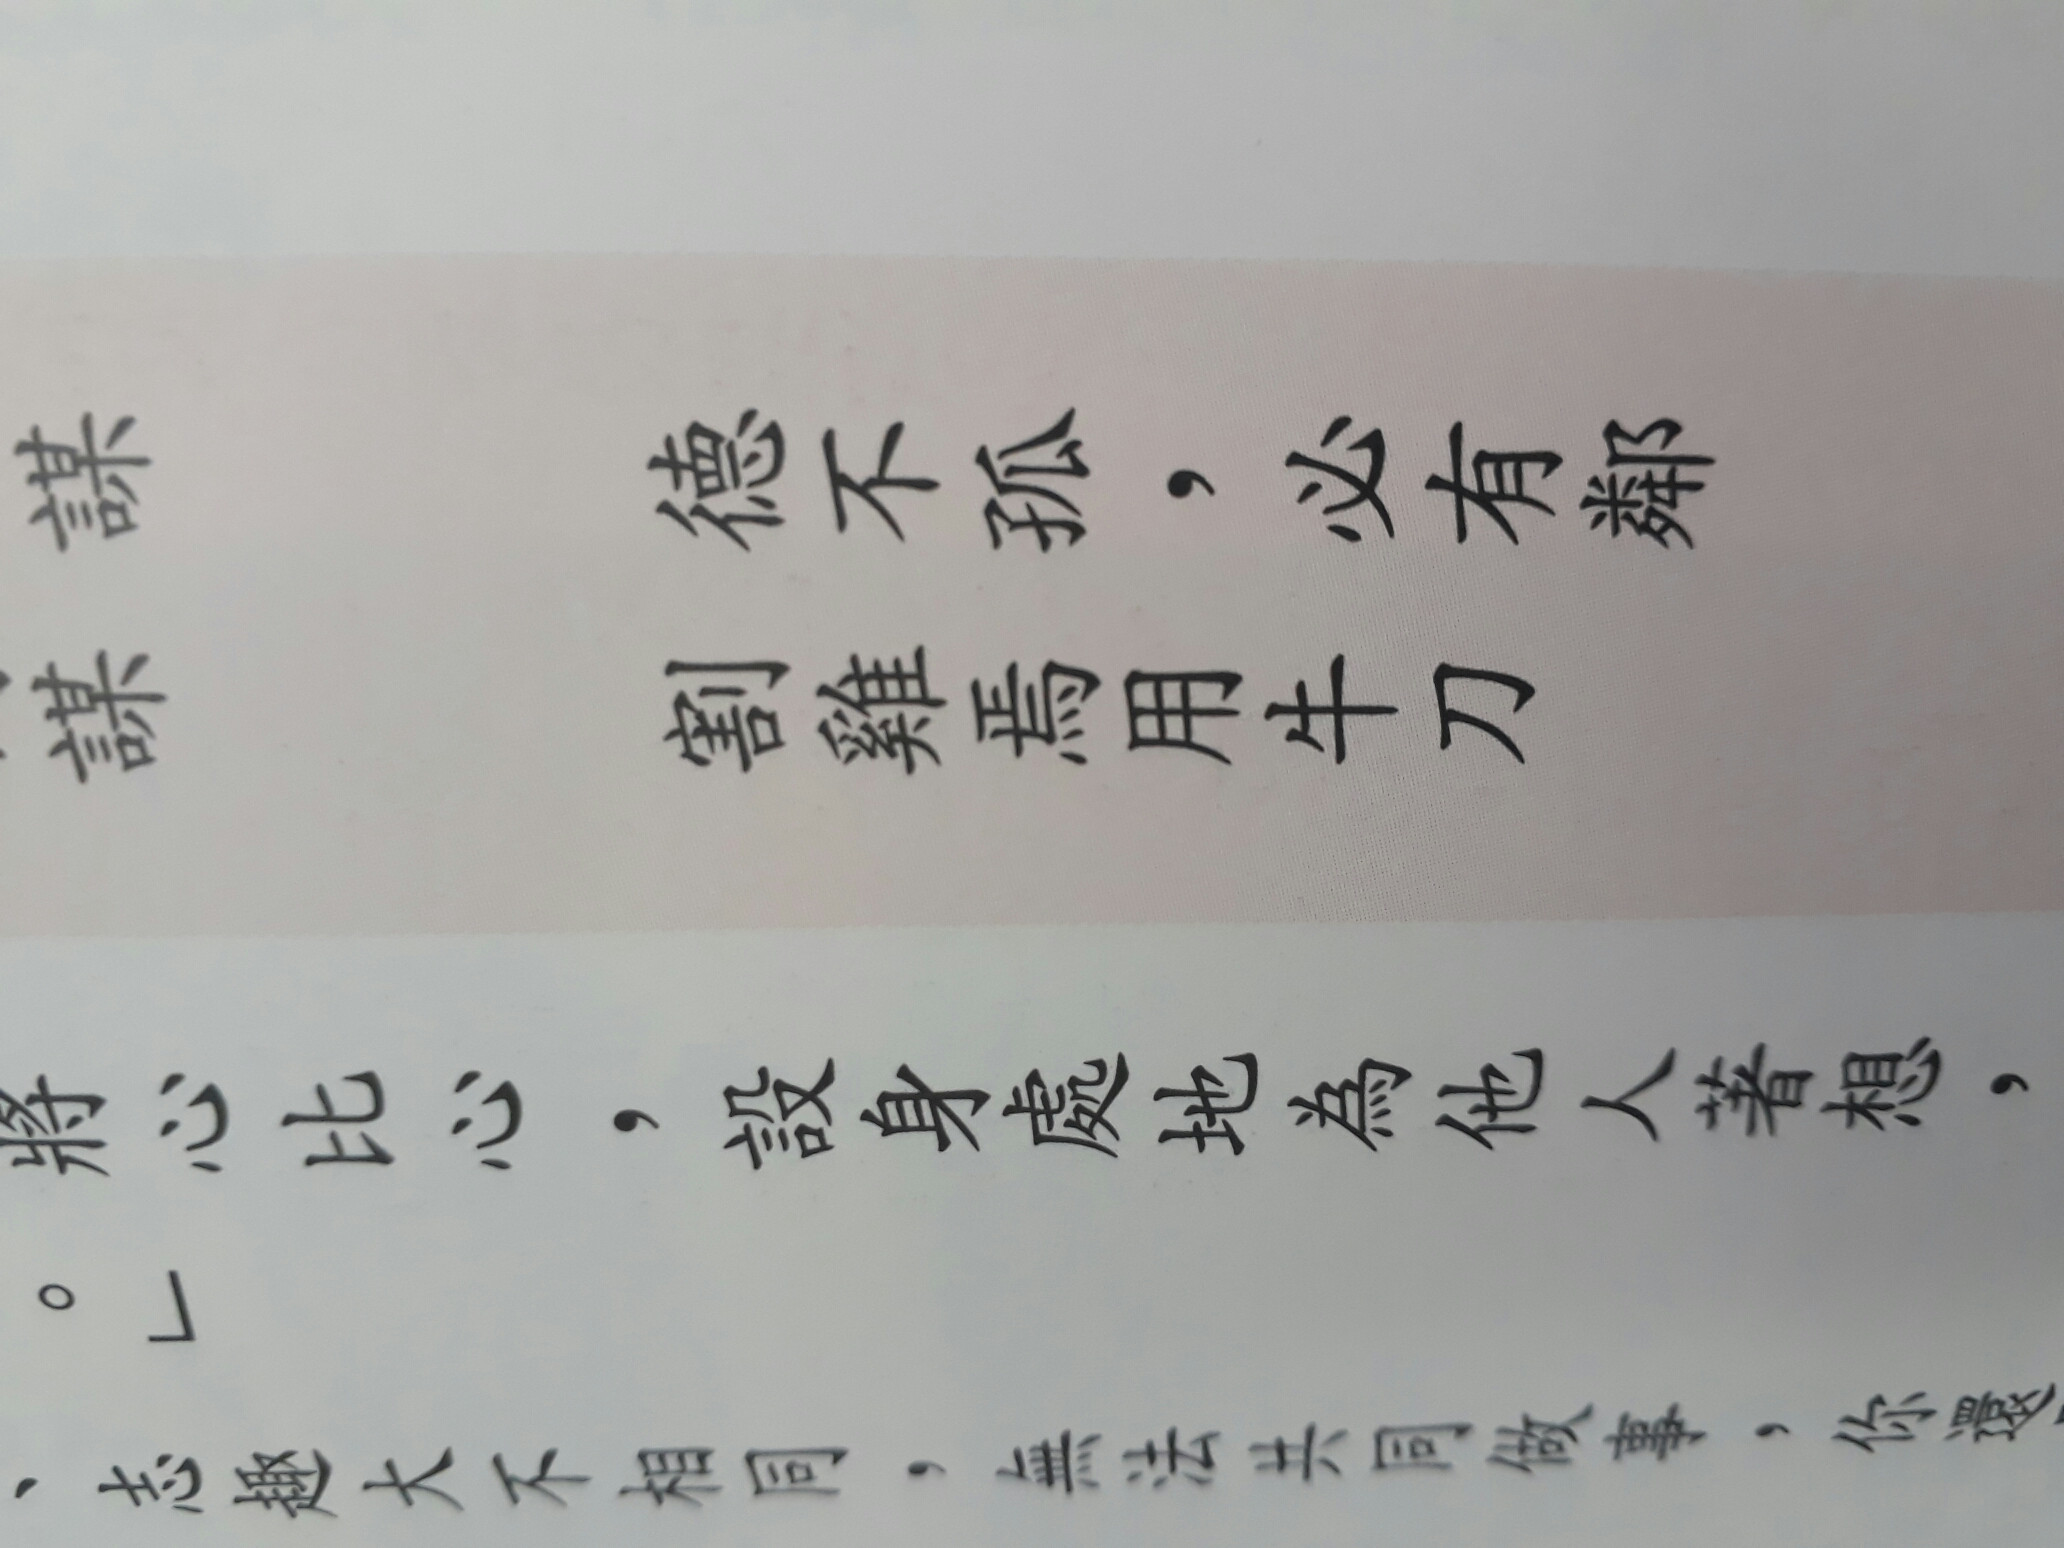 謀 德不孤，必有鄰
謀 割雞焉用牛刀
將心比心，設身處地為他人著想，
。」
、志趣大不相同，無法共同做事，你還